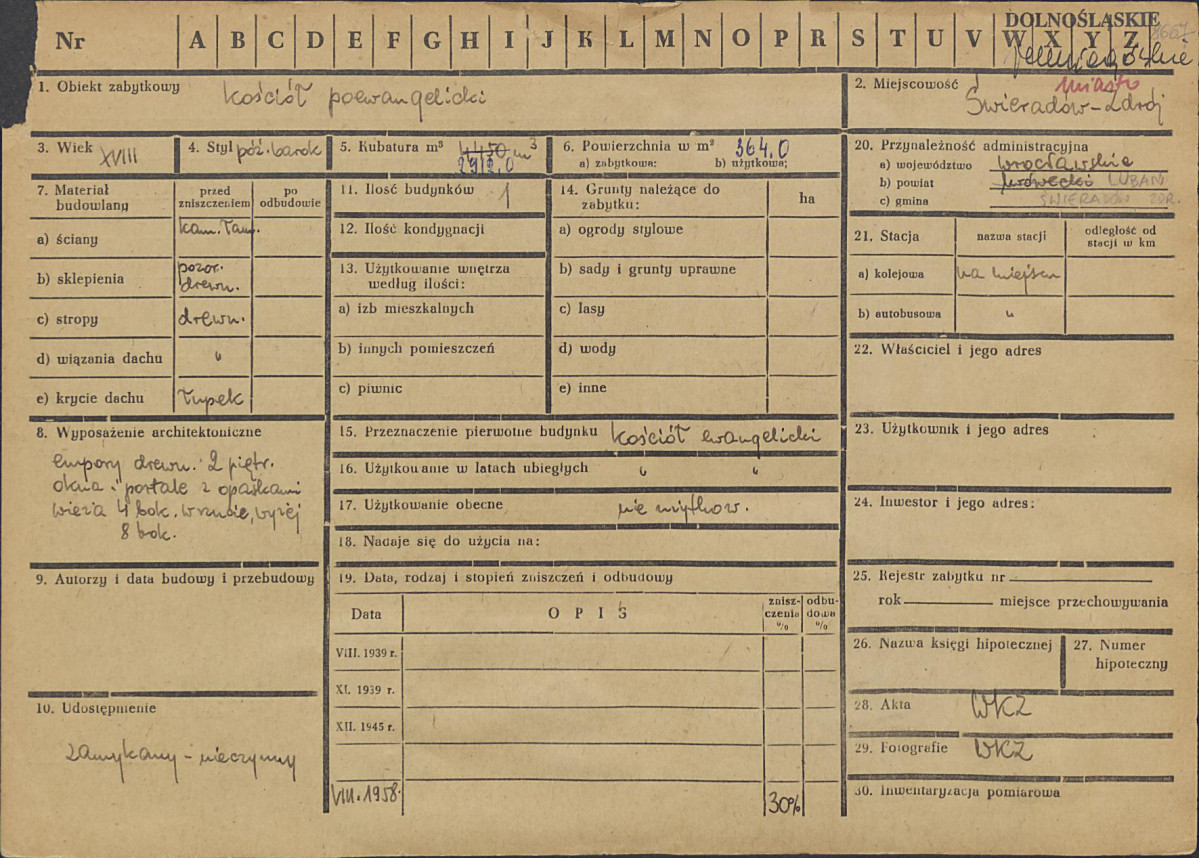 DOLNOŚLĄSKIE
Nr A B C D E F G H I J K L M N O P R S T U V W X Y Z
1. Obiekt zabytkowy kościół poewangelicki
2. Miejscowość miasto
Świeradów-Zdrój
3. Wiek XVIII
4. Styl póź. barok
5. Kubatura m³ 4450 m³
2912,0
6. Powierzchnia w m² 364,0
a) zabytkowa: b) użytkowa:
7. Materiał budowlany
przed zniszczeniem
po odbudowie
a) ściany kam. łam.
b) sklepienia pozor. drewn.
c) stropy drewn.
d) wiązania dachu "
e) krycie dachu łupek
8. Wyposażenie architektoniczne
empory drewn. 2 piętr.
okna i portale z opaskami
wieża 4 bok. w rzucie, wyżej
8 bok.
9. Autorzy i data budowy i przebudowy
10. Udostępnienie
zamykany - nieczynny
11. Ilość budynków 1
12. Ilość kondygnacji
13. Użytkowanie wnętrza
według ilości:
a) izb mieszkalnych
b) innych pomieszczeń
c) piwnic
14. Grunty należące do
zabytku:
ha
a) ogrody stylowe
b) sady i grunty uprawne
c) lasy
d) wody
e) inne
15. Przeznaczenie pierwotne budynku kościół ewangelicki
16. Użytkowanie w latach ubiegłych " "
17. Użytkowanie obecne nie użytkow.
18. Nadaje się do użycia na:
19. Data, rodzaj i stopień zniszczeń i odbudowy
Data OPIS znisz-czenia % odbu-dowa %
VIII. 1939 r.
XI. 1939 r.
XII. 1945 r.
VIII. 1958. 30%
20. Przynależność administracyjna
a) województwo wrocławskie
b) powiat lwówecki LUBAŃ
c) gmina ŚWIERADÓW ZDR.
21. Stacja nazwa stacji odległość od
stacji w km
a) kolejowa na miejscu
b) autobusowa "
22. Właściciel i jego adres
23. Użytkownik i jego adres
24. Inwestor i jego adres:
25. Rejestr zabytku nr
rok miejsce przechowywania
26. Nazwa księgi hipotecznej
27. Numer
hipoteczny
28. Akta WKZ
29. Fotografie WKZ
30. Inwentaryzacja pomiarowa